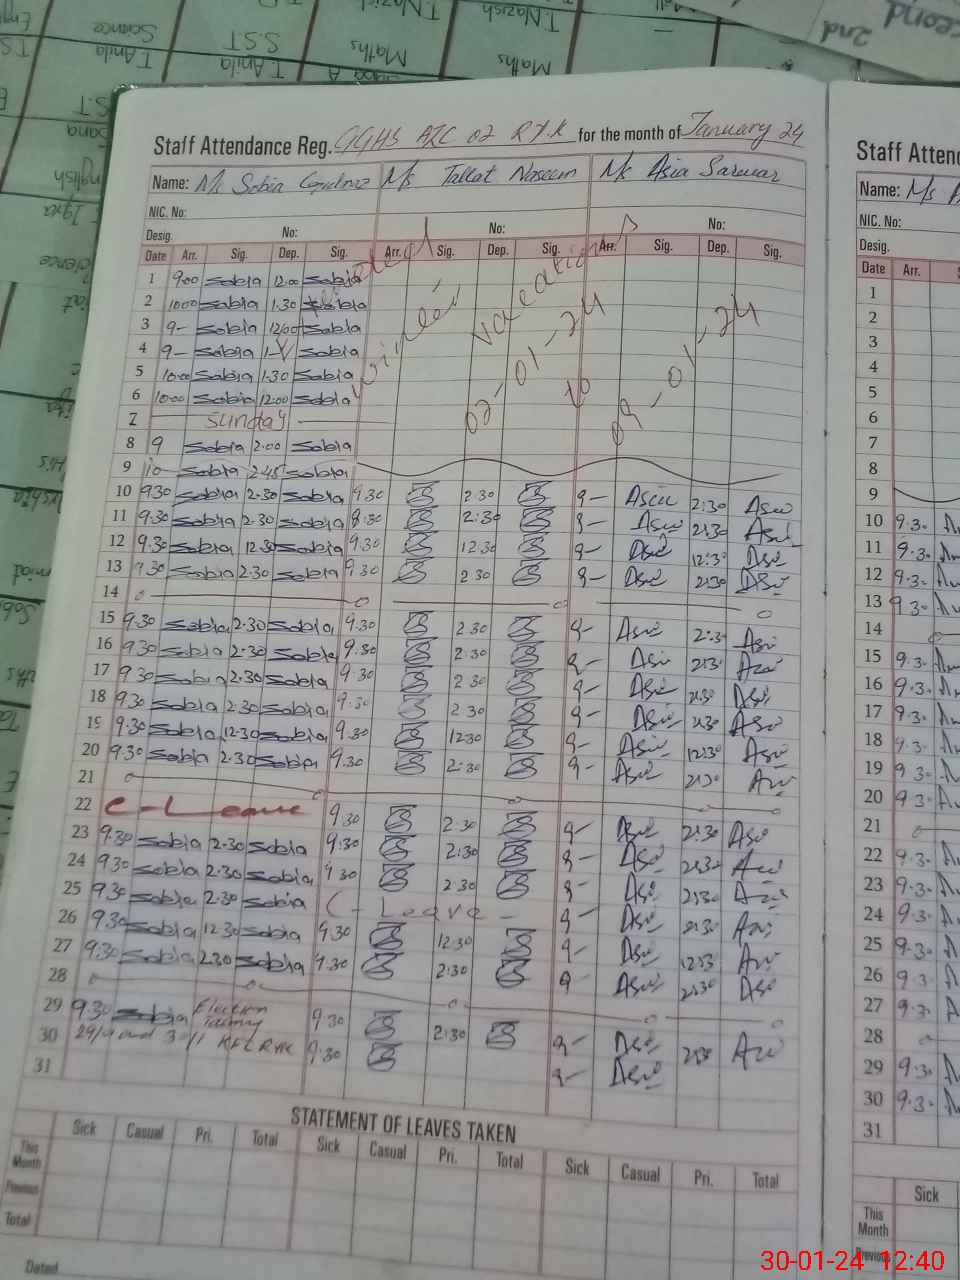 Second
2nd
T. Nazish
Maths
Maths
T. Anila
S.ST
T. Anila
Science
Staff Attendance Reg. GGHS AZC 02 R.Y.K for the month of January 24
Name: Ms Sobia Ms Tallat Naseem Ms Asia Sarwar
NIC. No:
Desig. No: No: No:
Date Arr. Sig. Dep. Sig. Arr. Sig. Dep. Sig. Arr. Sig. Dep. Sig.
winter vacations
02-01-24 to 09-01-24
1 9.00 Sobia 12.00 Sobia
2 10.00 Sobia 1.30 Sobia
3 9- Sobia 12.00 Sobia
4 9- Sobia Sobia
5 10.00 Sobia 1.30 Sobia
6 10.00 Sobia 12.00 Sobia
7 Sunday
8 9 Sobia 2.00 Sobia
9 10 Sobia 2.45 Sobia
10 9.30 Sobia 2.30 Sobia 9.30 2.30 9- Asia 2:30 Asia
11 9.30 Sobia 2.30 Sobia 8.30 2:30 9- Asia 2:30 Asia
12 9.30 Sobia 12.30 Sobia 9.30 12.30 9- Asia 12:30 Asia
13 9.30 Sobia 2.30 Sobia 9.30 2.30 9- Asia 2:30 Asia
14
15 9.30 Sobia 2.30 Sobia 9.30 2.30 9- Asia 2:30 Asia
16 9.30 Sobia 2.30 Sobia 9.30 2.30 9- Asia 2:30 Asia
17 9.30 Sobia 2.30 Sobia 9.30 2.30 9- Asia 2:30 Asia
18 9.30 Sobia 2.30 Sobia 9.30 2.30 9- Asia 2:30 Asia
19 9.30 Sobia 12.30 Sobia 9.30 12.30 9- Asia 12:30 Asia
20 9.30 Sobia 2.30 Sobia 9.30 2:30 9- Asia 2:30 Asia
21
22 C-Leave 9.30 2.30 9- Asia 2:30 Asia
23 9.30 Sobia 2.30 Sobia 9.30 2:30 9- Asia 2:30 Asia
24 9.30 Sobia 2.30 Sobia 9.30 2.30 9- Asia 2:30 Asia
25 9.30 Sobia 2.30 Sobia C-Leave- 9- Asia 2:30 Asia
26 9.30 Sobia 12.30 Sobia 9.30 12.30 9- Asia 12:30 Asia
27 9.30 Sobia 2.30 Sobia 9.30 2:30 9- Asia 2:30 Asia
28
29 9.30 Sobia Election 9.30 2:30 9- Asia 2:30 Asia
30 29/1 and 30/1 RYK 9.30 9- Asia
31
STATEMENT OF LEAVES TAKEN
Sick Casual Pri. Total Sick Casual Pri. Total Sick Casual Pri. Total
This Month
Previous
Total
Dated
Staff Atten
Name: Ms
NIC. No:
Desig.
Date Arr.
1
2
3
4
5
6
7
8
9
10 9.30
11 9.30
12 9.30
13 9.30
14
15 9.30
16 9.30
17 9.30
18 9.30
19 9.30
20 9.30
21
22 9.30
23 9.30
24 9.30
25 9.30
26 9.30
27 9.30
28
29 9.30
30 9.30
31
Sick
This Month
Previous
30-01-24 12:40